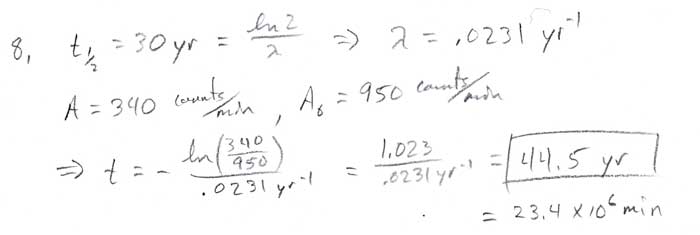 8, t½ = 30 yr = ln2/λ ⇒ λ = .0231 yr⁻¹
A = 340 counts/min , A₀ = 950 counts/min
⇒ t = - ln(340/950)/.0231 yr⁻¹ = 1.023/.0231 yr⁻¹ = 44.5 yr
= 23.4 × 10⁶ min